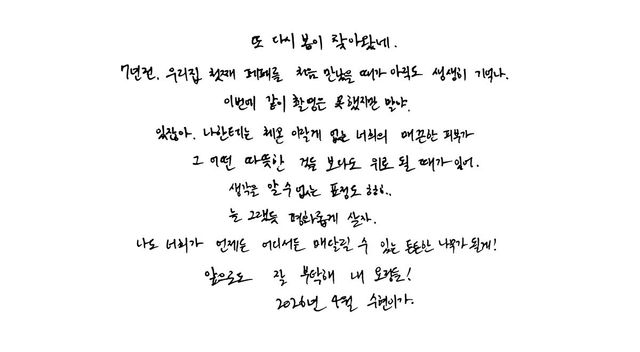 또 다시 봄이 찾아왔네.
7년전, 우리집 첫째 페페를 처음 만났을 때가 아직도 생생히 기억나.
이번에 같이 촬영은 못했지만 말야.
있잖아. 나한테는 체온 이랄게 없는 너희의 매끈한 피부가
그 어떤 따뜻한 것들 보다도 위로 될 때가 있어.
생각을 알 수 없는 표정도 하하..
늘 그랬듯 평화롭게 살자.
나도 너희가 언제든 어디서든 매달릴 수 있는 든든한 나무가 될게!
앞으로도 잘 부탁해 내 도마뱀들!
2026년 4월 수현이가.